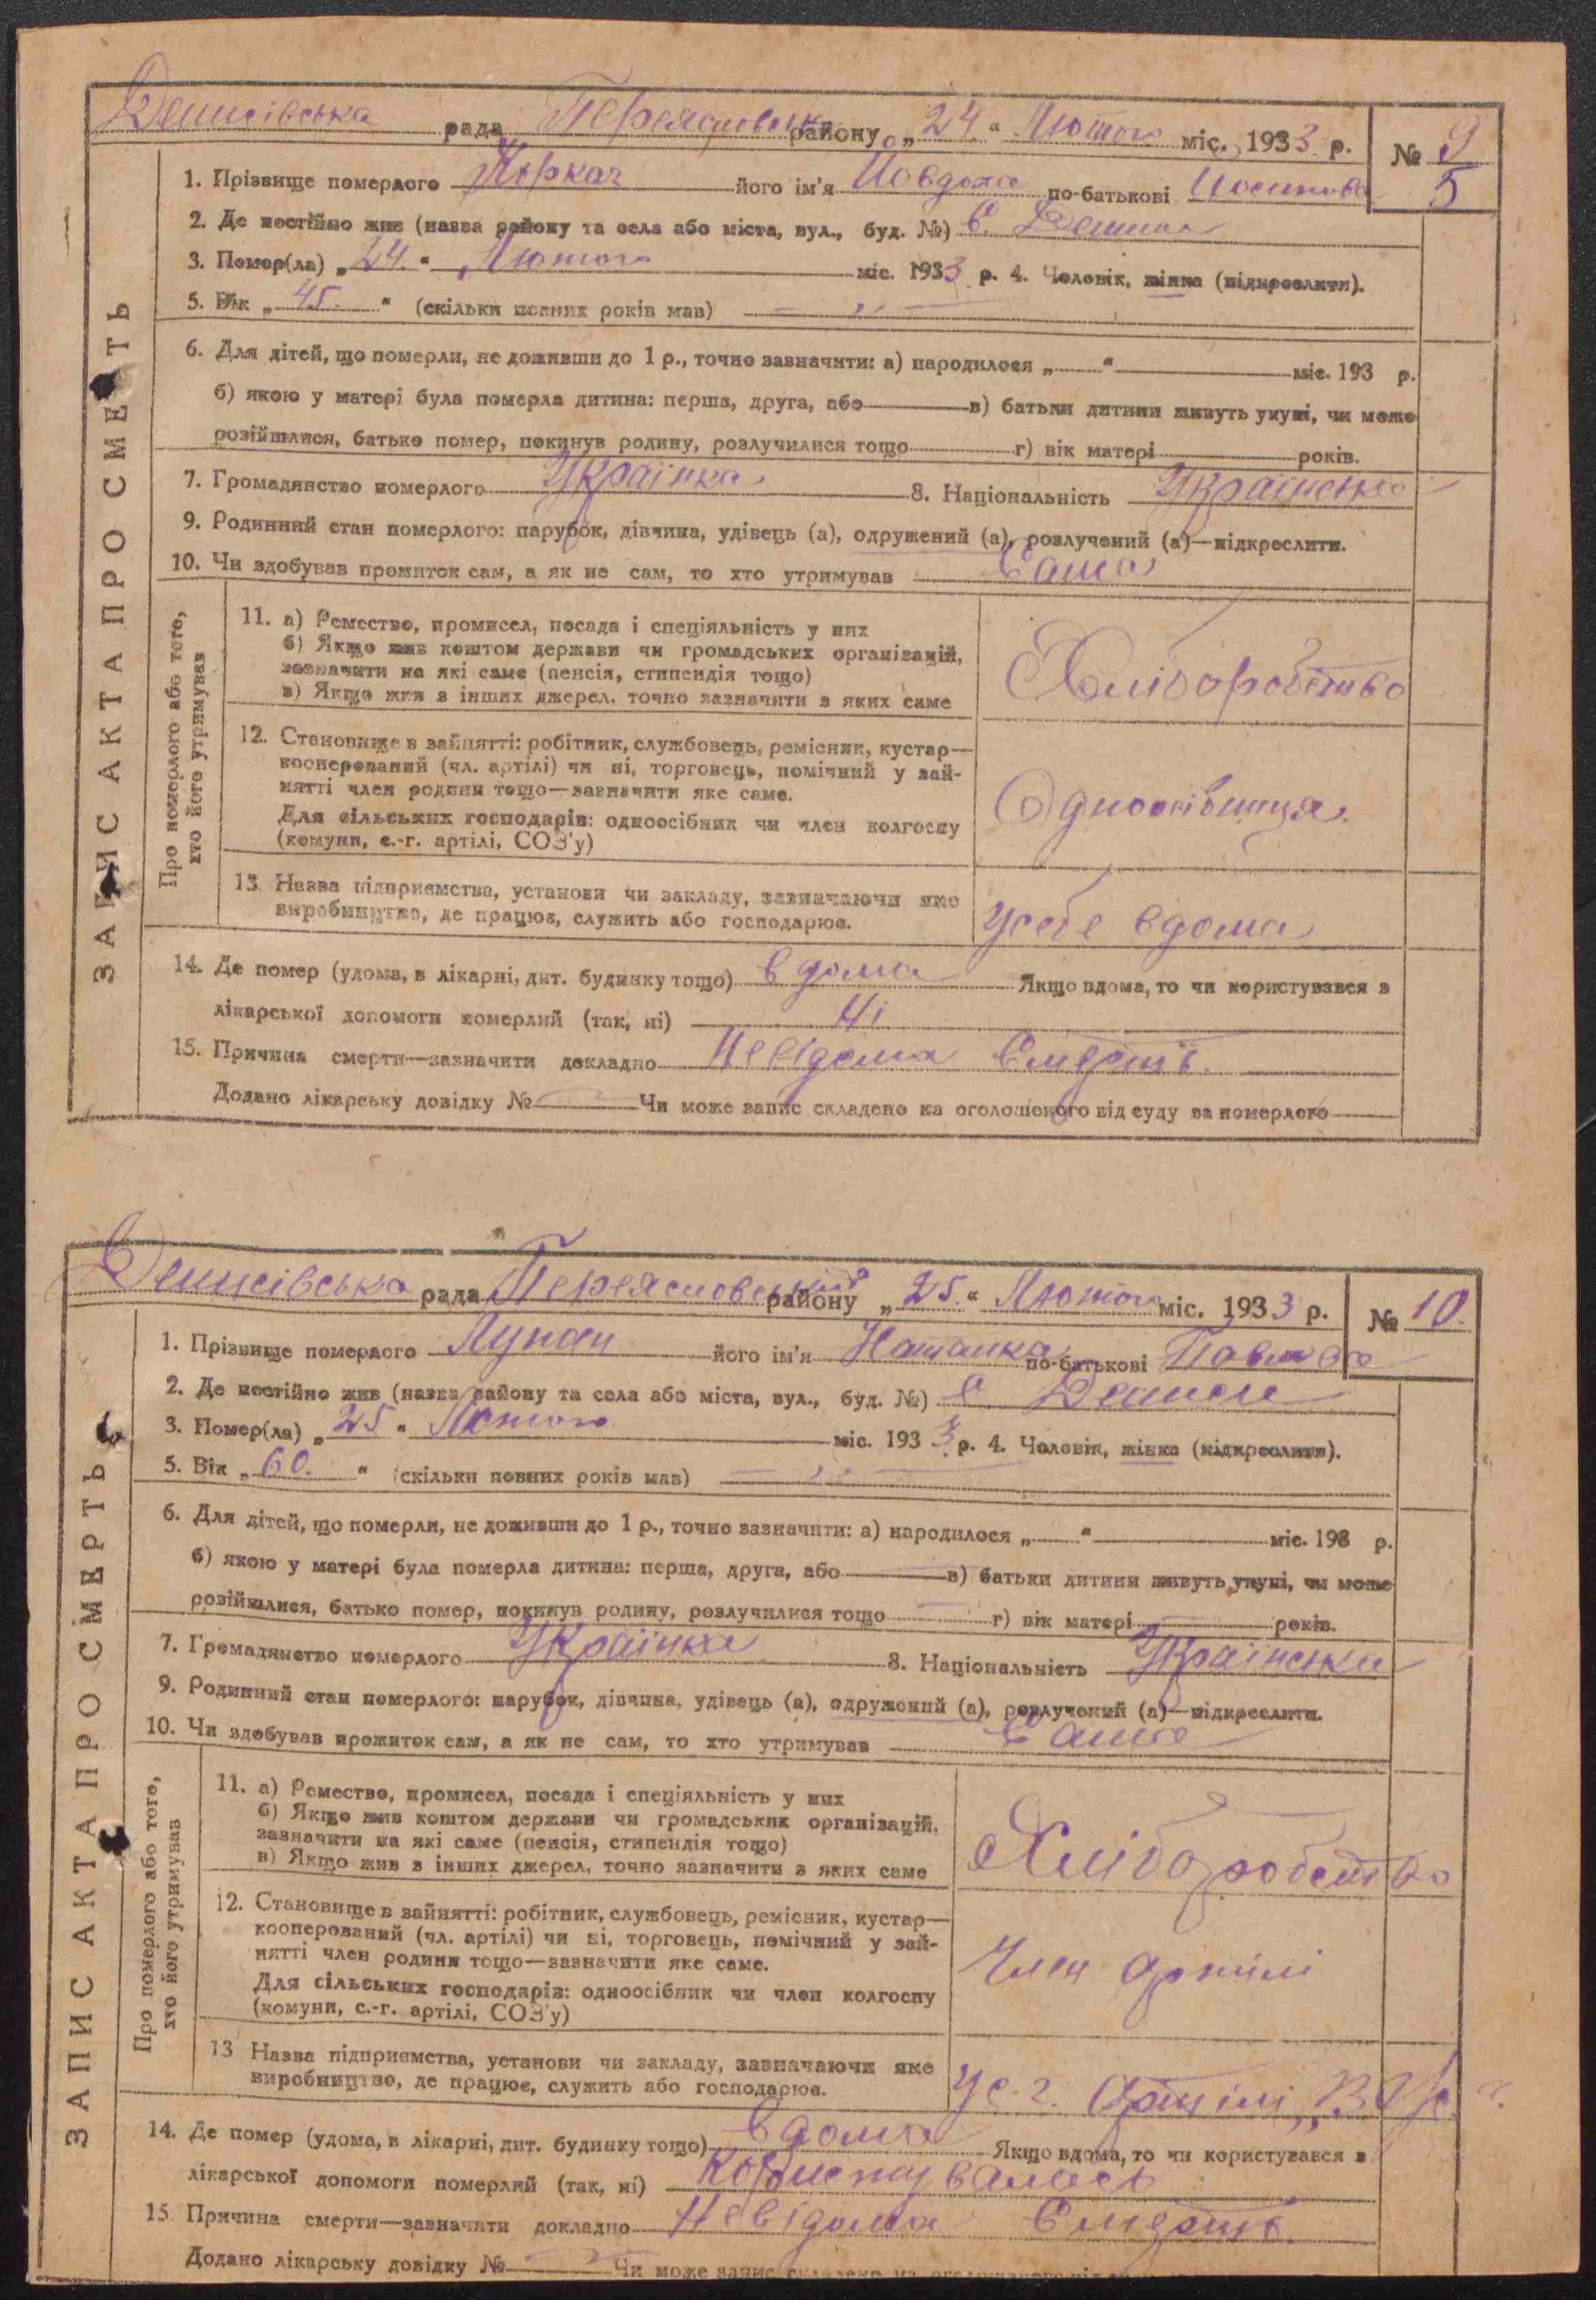 Денисівська рада Переясловськ району „24“ Лютого міс. 1933 р. № 9
5
1. Прізвище померлого Коркач його ім'я Йовдоха по-батькові Иосипова
2. Де постійно жив (назва району та села або міста, вул., буд. №) С. Дениси
3. Помер(ла) „24“ Лютого міс. 1933 р. 4. Чоловік, жінка (підкреслити).
5. Вік „45.“ (скільки повних років мав) — „ —
6. Для дітей, що померли, не доживши до 1 р., точно зазначити: а) народилося „ “ міс. 193 р.
б) якою у матері була померла дитина: перша, друга, або в) батьки дитини живуть укупі, чи може
розійшлися, батько помер, покинув родину, розлучилися тощо г) вік матері років.
7. Громадянство померлого Українка 8. Національність Українська
9. Родинний стан померлого: парубок, дівчина, удівець (а), одружений (а), розлучений (а)—підкреслити.
10. Чи здобував прожиток сам, а як не сам, то хто утримував Сама
ЗАПИС АКТА ПРО СМЕРТЬ
Про померлого або того,
хто його утримував
11. а) Ремество, промисел, посада і спеціяльність у них
б) Якщо жив коштом держави чи громадських організацій,
зазначити на які саме (пенсія, стипендія тощо)
в) Якщо жив з інших джерел, точно зазначити з яких саме
Хліборобство
12. Становище в зайнятті: робітник, службовець, ремісник, кустар—
кооперований (чл. артілі) чи ні, торговець, помічний у зай-
нятті член родини тощо—зазначити яке саме.
Для сільських господарів: одноосібник чи член колгоспу
(комуни, с.-г. артілі, СОЗ'у)
Одноосібниця.
13. Назва підприємства, установи чи закладу, зазначаючи яке
виробництво, де працює, служить або господарює.
Усебе вдома
14. Де помер (удома, в лікарні, дит. будинку тощо) вдома Якщо вдома, то чи користувався з
лікарської допомоги померлий (так, ні) Ні
15. Причина смерти—зазначити докладно Невідома Смерть.
Додано лікарську довідку № Чи може запис складено на оголошеного від суду за померлого
Денисівська рада Переясловський району „25.“ Лютого міс. 1933 р. № 10.
1. Прізвище померлого Лупан його ім'я Наталка по-батькові Павлова
2. Де постійно жив (назва району та села або міста, вул., буд. №) С Дениси
3. Помер(ла) „25“ Лютого міс. 1933 р. 4. Чоловік, жінка (підкреслити).
5. Вік „60.“ (скільки повних років мав) — „ —
6. Для дітей, що померли, не доживши до 1 р., точно зазначити: а) народилося „ “ міс. 193 р.
б) якою у матері була померла дитина: перша, друга, або в) батьки дитини живуть укупі, чи може
розійшлися, батько помер, покинув родину, розлучилися тощо г) вік матері років.
7. Громадянство померлого Українка 8. Національність Українська
9. Родинний стан померлого: парубок, дівчина, удівець (а), одружений (а), розлучений (а)—підкреслити.
10. Чи здобував прожиток сам, а як не сам, то хто утримував Сама
ЗАПИС АКТА ПРО СМЕРТЬ
Про померлого або того,
хто його утримував
11. а) Ремество, промисел, посада і спеціяльність у них
б) Якщо жив коштом держави чи громадських організацій,
зазначити на які саме (пенсія, стипендія тощо)
в) Якщо жив з інших джерел, точно зазначити з яких саме
Хліборобство
12. Становище в зайнятті: робітник, службовець, ремісник, кустар—
кооперований (чл. артілі) чи ні, торговець, помічний у зай-
нятті член родини тощо—зазначити яке саме.
Для сільських господарів: одноосібник чи член колгоспу
(комуни, с.-г. артілі, СОЗ'у)
Член артілі
13 Назва підприємства, установи чи закладу, зазначаючи яке
виробництво, де працює, служить або господарює.
У с. г. Артілі
14. Де помер (удома, в лікарні, дит. будинку тощо) вдома Якщо вдома, то чи користувався з
лікарської допомоги померлий (так, ні) Користувалась
15. Причина смерти—зазначити докладно Невідома Смерть.
Додано лікарську довідку № Чи може запис складено на